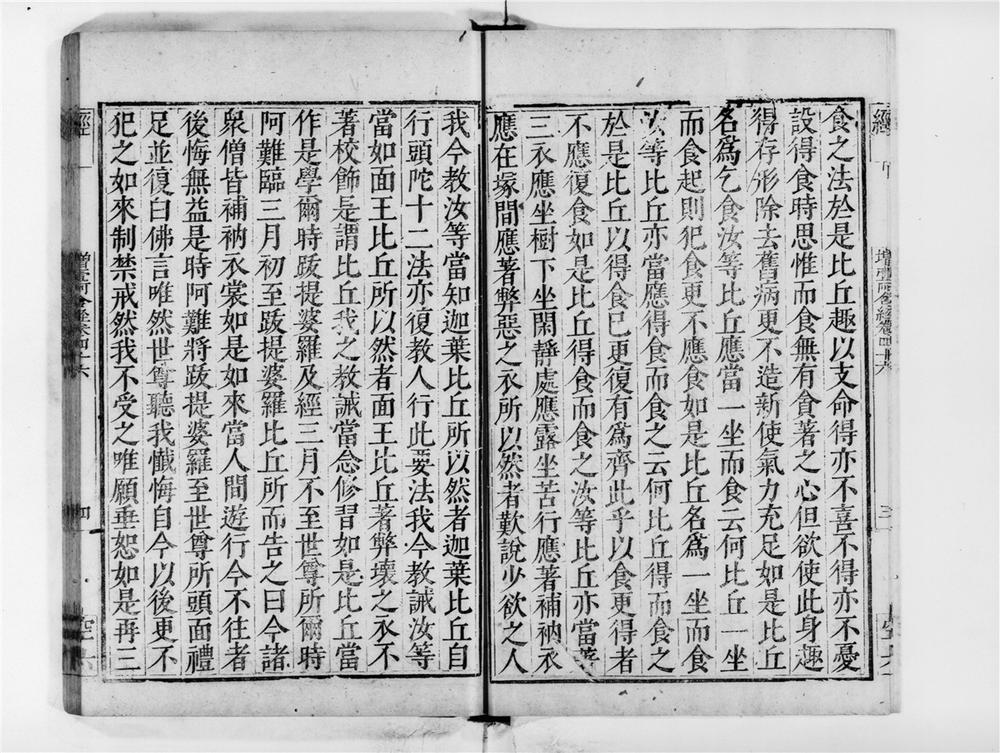 食之法於是比丘趣以支命得亦不喜不得亦不憂
設得食時思惟而食無有貪著之心但欲使此身趣
得存形除去舊病更不造新使氣力充足如是比丘
名爲乞食汝等比丘應當一坐而食云何比丘一坐
而食起則犯食更不應食如是比丘名爲一坐而食
汝等比丘亦當應得食而食之云何比丘得而食之
於是比丘以得食已更復有爲齊此乎以食更得者
不應復食如是比丘得食而食之汝等比丘亦當著
三衣應坐樹下坐閑靜處應露坐苦行應著補衲衣
應在塚間應著弊惡之衣所以然者歎說少欲之人
我今教汝等當知迦葉比丘所以然者迦葉比丘自
行頭陀十二法亦復教人行此要法我今教誡汝等
當如面王比丘所以然者面王比丘著弊壞之衣不
著校飾是謂比丘我之教誡當念修習如是比丘當
作是學爾時跋提婆羅及經三月不至世尊所爾時
阿難臨三月初至跋提婆羅比丘所而告之曰今諸
衆僧皆補衲衣裳如是如來當人間遊行今不往者
後悔無益是時阿難將跋提婆羅至世尊所頭面禮
足並復白佛言唯然世尊聽我懺悔自今以後更不
犯之如來制禁戒然我不受之唯願垂恕如是再三
經
增壹阿含經卷四十六
四
空六